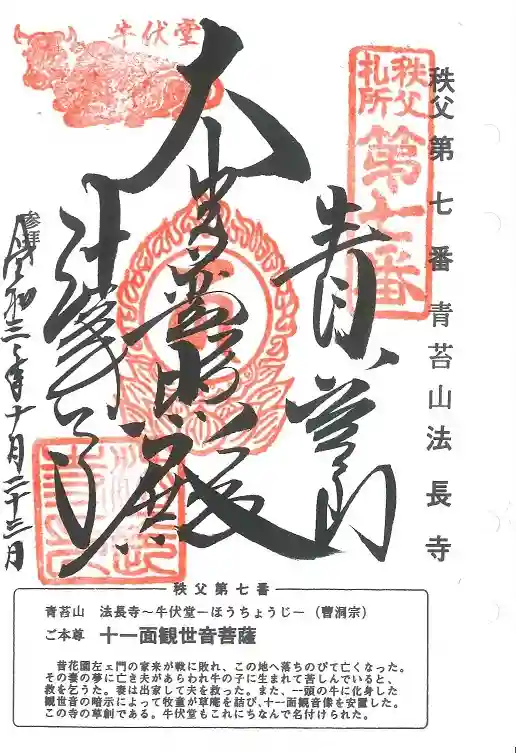 牛伏堂
秩父
札所
第七番
秩父第七番 青苔山法長寺
青苔山
大光普照殿
法長寺
参拝
令和三年十月二十三日
秩父第七番
青苔山 法長寺～牛伏堂－ほうちょうじ－（曹洞宗）
ご本尊 十一面観世音菩薩
昔花園左ェ門の家来が戦に敗れ、この地へ落ちのびて亡くなった。
その妻の夢に亡き夫があらわれ牛の子に生まれて苦しんでいると、
救を乞うた。妻は出家して夫を救った。また、一頭の牛に化身した
観世音の暗示によって牧童が草庵を結び、十一面観音像を安置した。
この寺の草創である。牛伏堂もこれにちなんで名付けられた。